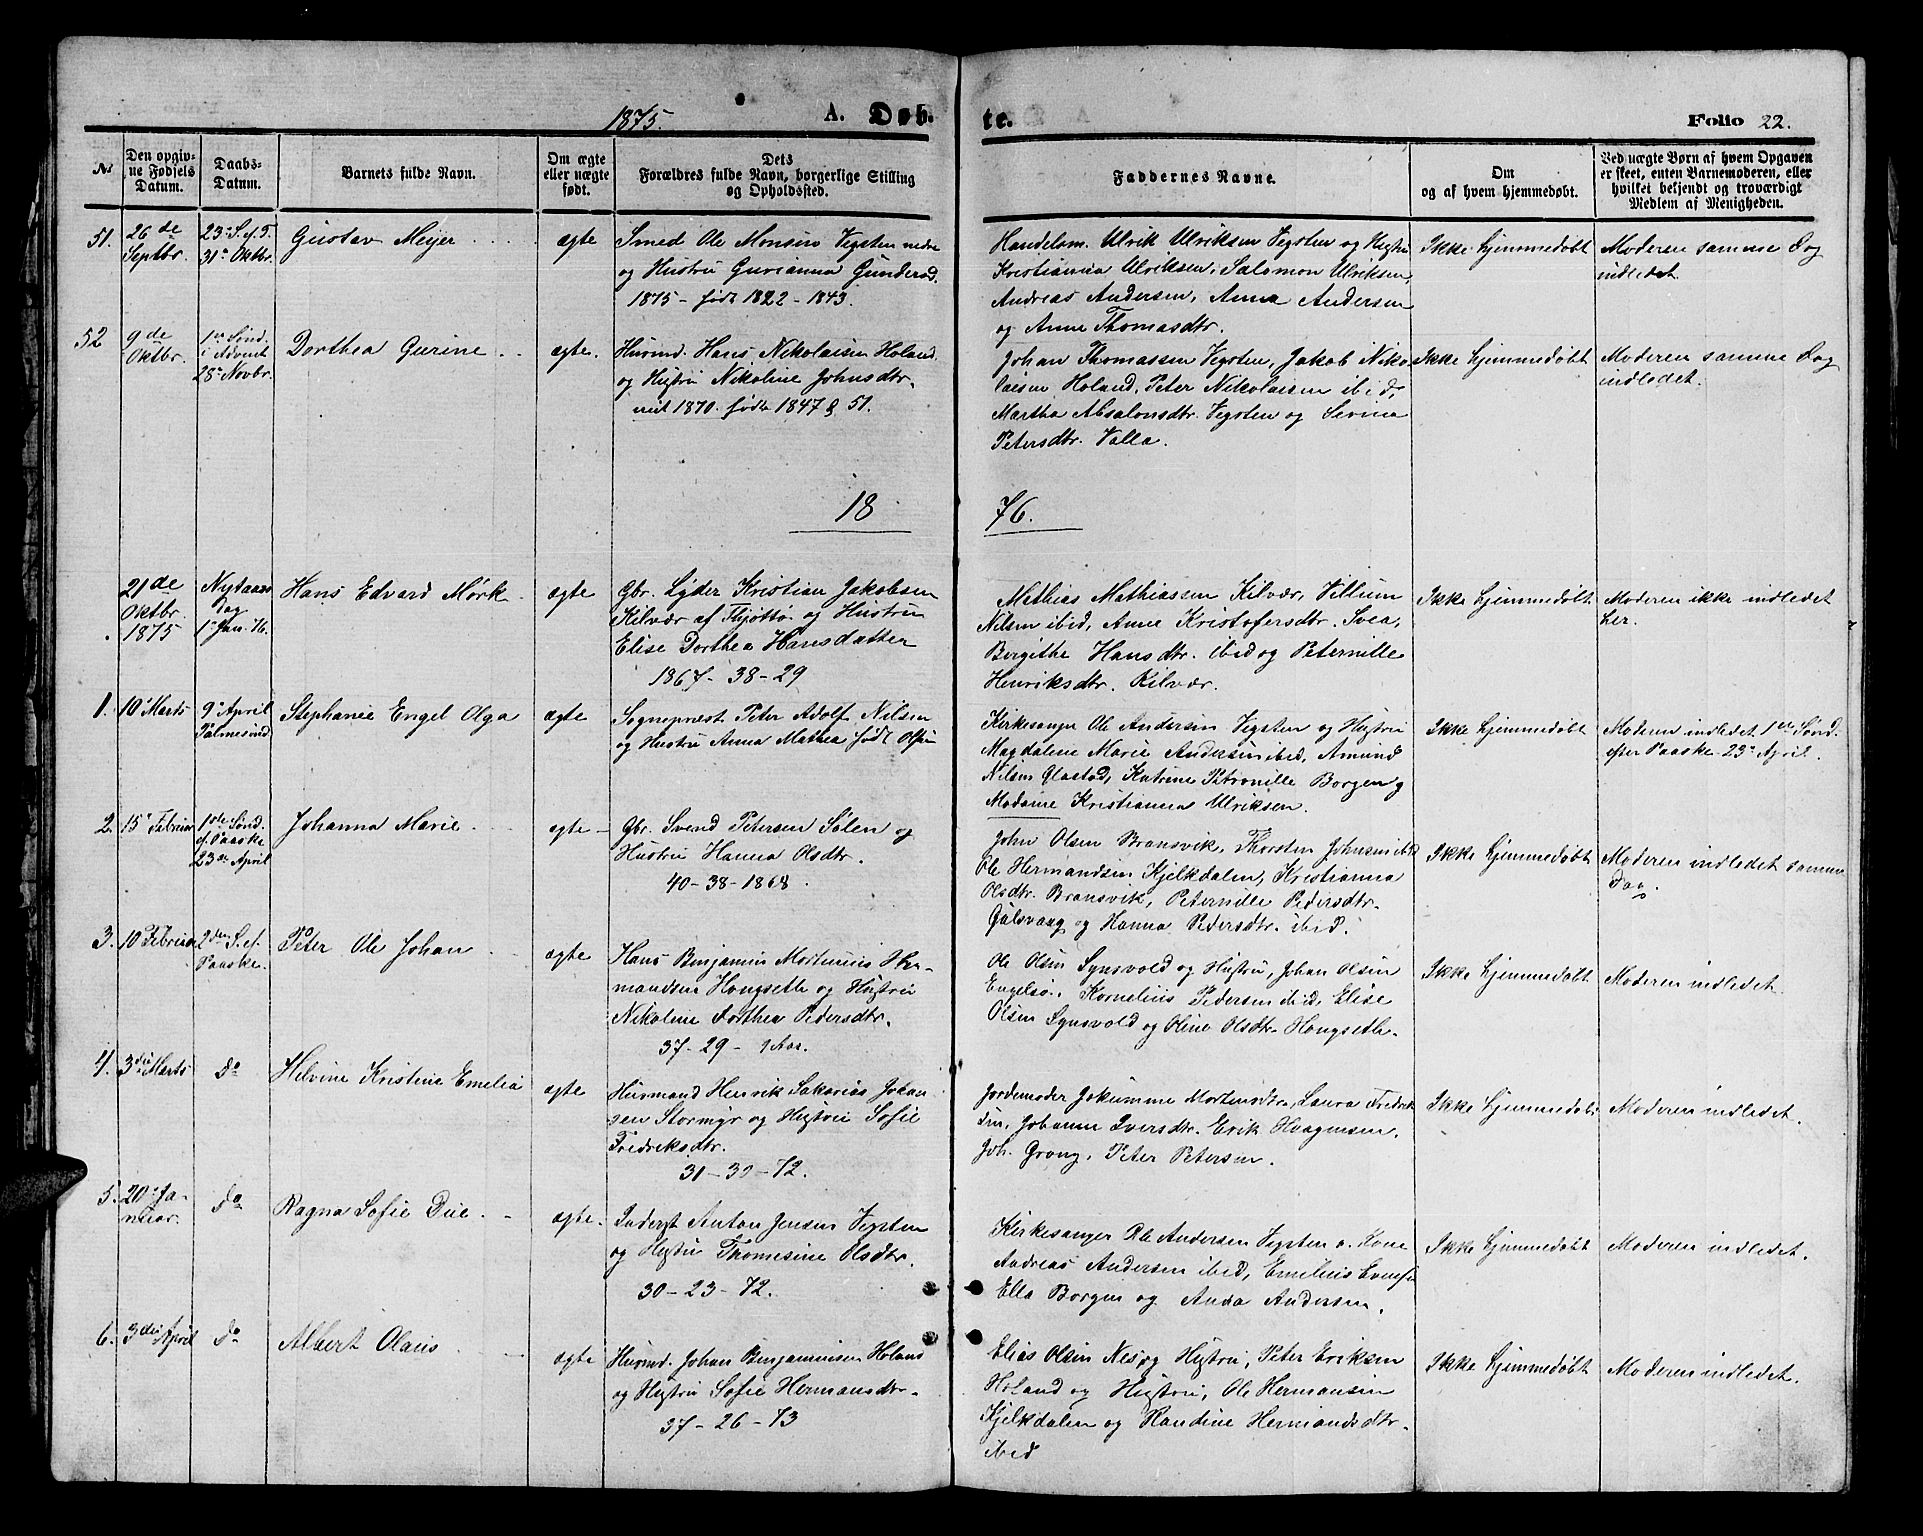 1875. A. Døb- te. Folio 22.
No
Den opgiv-
ne Fødsels
Datum.
Daabs-
Datum.
Barnets fulde Navn.
Om ægte
eller uægte
født.
Dets
Forældres fulde Navn, borgerlige Stilling
og Opholdssted.
Faddernes Navne.
Om
og af hvem hjemmedøbt.
Ved uægte Børn af hvem Opgaven
er skeet, enten Barnemoderen, eller
hvilket bekjendt og troværdigt
Medlem af Menigheden.
51.
26de
Septbr.
23. S. e. T.
31. Oktbr.
Gustav Meyer
ægte
Smed Ole Monsen Vegsten nedre
og Hustru Gurianna Gundersd.
1875 - født 1822 - 1843.
Handelsm. Ulrik Ulriksen Vegsten og Hustru
Kristianna Ulriksen, Salomon Ulriksen,
Andreas Andersen, Anna Andersen
og Anne Thomasdtr.
Ikke hjemmedøbt
Moderen samme Dag
indledet.
52
9de
Oktbr.
1ste Sønd.
i Advent
28. Novbr.
Dorthea Gurine
ægte.
Husmd. Hans Nikolaisen Holand
og Hustru Nikoline Johnsdtr.
viet 1870. født 1847 & 51.
Johan Thomassen Vegsten, Jakob Niko-
laisen Holand, Peter Nikolaisen ibid,
Martha Absalonsdtr. Vegsten og Sevina
Petersdtr. Valla.
Ikke hjemmedøbt
Moderen samme Dag
indledet.
18 76.
21de
Oktbr.
1875
Nytaars
dag
1. Jan. 76.
Hans Edvard Mørk
ægte
Gbr. Lyder Kristian Jakobsen
Kilvær af Thjøttø og Hustru
Elise Dorthea Hansdatter
1867 - 38 - 29
Mathias Mathiassen Kilvær, Villum
Nilsen ibid, Anne Kristofersdtr. Svea,
Bergithe Hansdtr. ibid og Peternille
Henriksdtr. Kilvær.
Ikke hjemmedøbt
Moderen ikke indledet
her.
1.
10. Marts
9. April
Palmesønd.
Stephanie Engel Olga
ægte
Sogneprest Peter Adolf Nilsen
og Hustru Anna Mathea født Olsen
Kirkesanger Ole Andersen Vegsten og Hustru
Magdalene Marie Andersen ibid, Amund
Nilsen Glastad, Katrine Petronille Borgen og
Madame Kristianna Ulriksen.
Ikke hjemmedøbt
Moderen indledet 1ste Sønd.
efter Paaske 23. April.
2.
15. Februar
1ste Sønd.
e. Paaske
23de April
Johanna Marie
ægte
Gbr. Svend Petersen Sølen og
Hustru Hanna Olsdtr.
40 - 38 - 1868.
John Olsen Bransvik, Thorsten Johnsen ibid
Ole Hermandsen Kjelkdalen, Kristianna
Olsdtr. Bransvik, Peternille Pedersdtr.
Gulsvaag og Hanna Pedersdtr. ibid.
Ikke hjemmedøbt
Moderen indledet samme
Dag.
3.
10 Februar
2den S. ef.
Paaske.
Peter Ole Johan
ægte
Hans Benjamin Martinius Her-
mandsen Hongseth og Hustru
Nikoline Dorthea Pedersdtr.
37 - 29 - 9 Aar.
Ole Olsen Synsvold og Hustru, Johan Olsen
Engelsø, Kornelius Pedersen ibid, Elise
Olsen Synsvold og Oline Olsdtr. Hongseth.
Ikke hjemmedøbt
Moderen indledet.
4.
3die Marts
do
Helvine Kristine Emelia
ægte
Husmand Henrik Sakarias Johan-
sen Stormyr og Hustru Sofie
Fredriksdtr.
31 - 30 - 72.
Jordemoder Jakumine Mortensdtr, Laura Fredrik-
sen, Johanna Iversdtr. Erik Haagensen.
Joh. Grong, Peter Petersen.
Ikke hjemmedøbt
Moderen indledet.
5.
20. Ja-
nuar.
do
Ragna Sofie Due
ægte
Inderst Anton Jensen Vegsten
og Hustru Thomesine Olsdtr.
30 - 23 - 72.
Kirkesanger Ole Andersen Vegsten o. Kone
Andreas Andersen ibid, Emelius Evensen
Ella Borgen og Anna Andersen.
Ikke hjemmedøbt
Moderen indledet.
6.
3die April
do
Albert Olaus
ægte
Husmd. Johan Benjaminsen Holand
og Hustru Sofie Hermansdtr.
37 - 26 - 73
Elias Olsen Nes og Hustru, Peter Eriksen
Holand og Hustru, Ole Hermansen
Kjelkdalen og Randine Hermandsdtr.
ibid
Ikke hjemmedøbt
Moderen indledet.